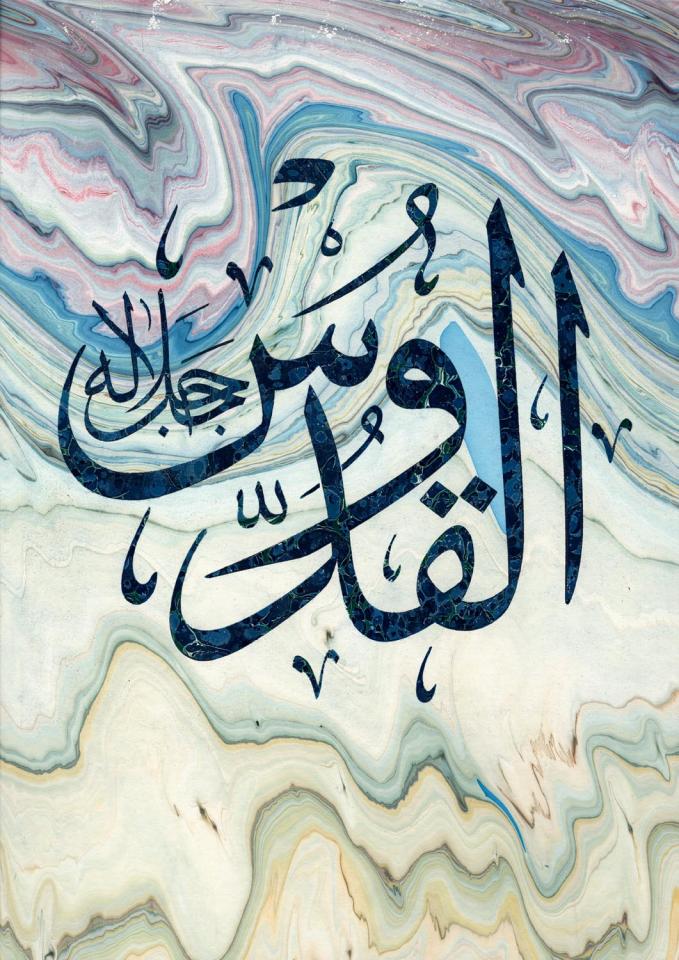 القدُّوسُ
جَلَّ جَلَالُهُ